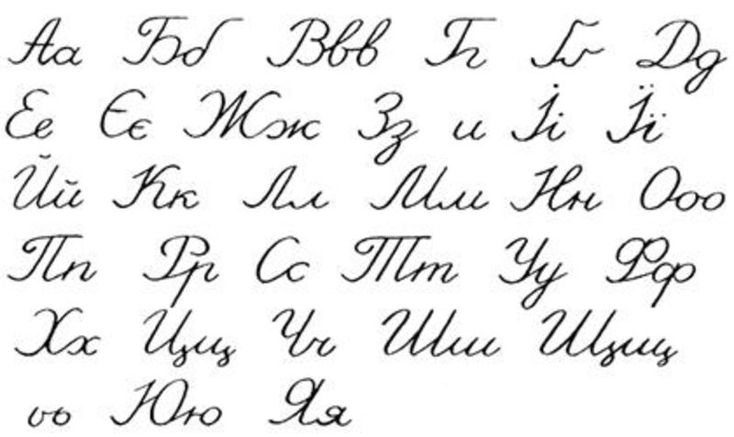 Аа Бб Ввв Гг Ґґ Дд
Ее Єє Жж Зз и Іі Її
Йй Кк Лл Мм Нн Ооо
Пп Рр Сс Тт Уу Фф
Хх Цц Чч Шш Щщ
ьь Юю Яя